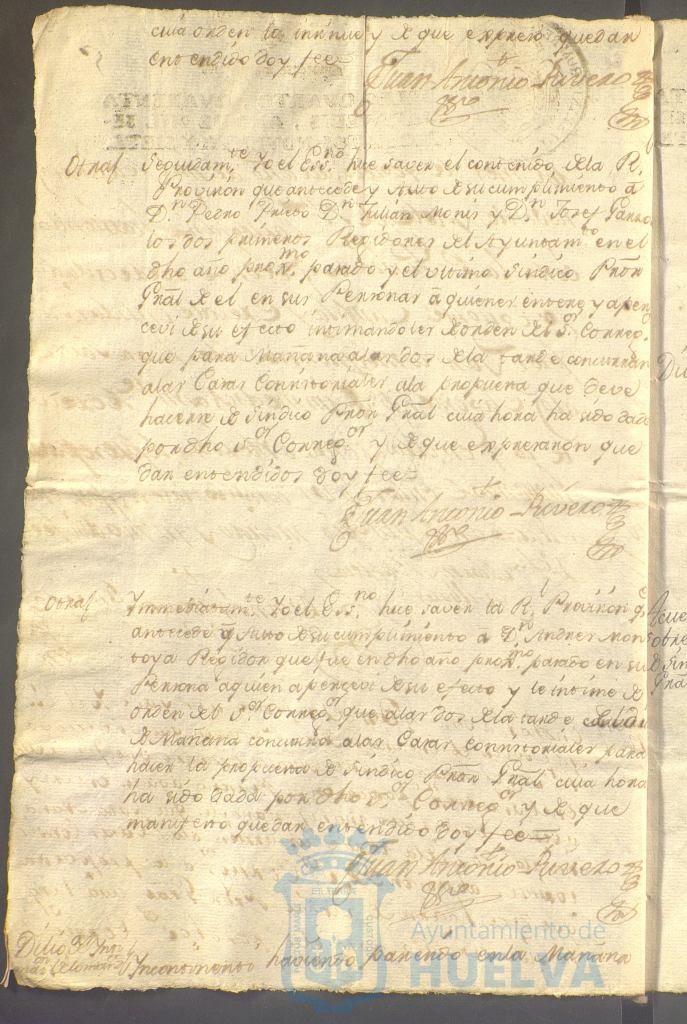 cuia orden le intime y de que expreso quedar
entendido doy fee=
Juan Antonio Rivero
Otras Seguidamte. Yo el Essno. hize saver el contenido de la Rl.
Provision que antecede y Auto de su cumplimiento a
Dn. Pedro Prieto Dn. Julian Monis y Dn. Josef Garro
los dos primeros Regidores del Ayuntamto. en el
dho año proxmo. pasado y el ultimo Sindico Prõr
Gñal de el en sus Personas a quienes entere y aper
cevi de su efecto intimandoles de orden del Sor. Correg.or
que para Mañana a las dos de la tarde concurran
a las Casas Consistoriales a la propuesta que deve
hacerse de Sindico Prõr Gñal cuia hora ha sido dada
por dho Sor. Corregor. y de que expresaron que
dar entendidos doy fee=
Juan Antonio Rivero
Otras Immediatamte. Yo el Essno. hize saver la Rl. Provision q.e
antecede y Auto de su cumplimiento a Dn. Andres Mon
toya Regidor que fue en dho año proxmo. pasado en su
Persona a quien apercevi de su efecto y le intime de
orden del Sor. Corregor. que a las dos de la tarde
de Mañana concurra a las Casas consistoriales para
hacer la propuesta de Sindico Prõr Gñal cuia hora
ha sido dada por dho Sor. Corregor. y de que
manifesto quedar entendido doy fee=
Juan Antonio Rivero
Incontinenti haviendo pasado en la Mañana
Ayuntamiento de
HUELVA